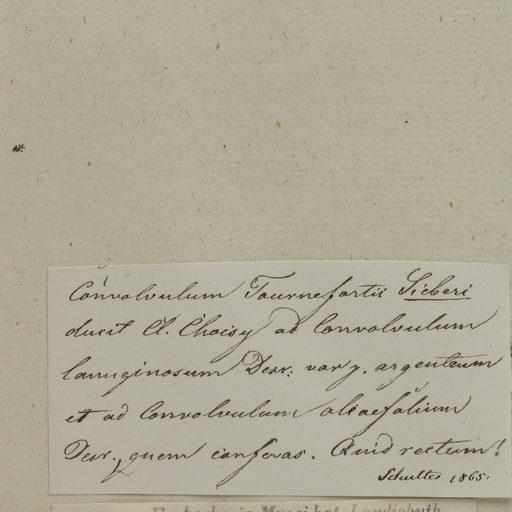 Convolvulum Tournefortii Sieberi
ducit Cl. Choisy ad Convolvulum
lanuginosum Desr: var γ. argenteum
et ad Convolvulum oliaefolium
Desr. quem conferas. Quid rectum!
Schultes 1865.
Musei bot. Landishuth